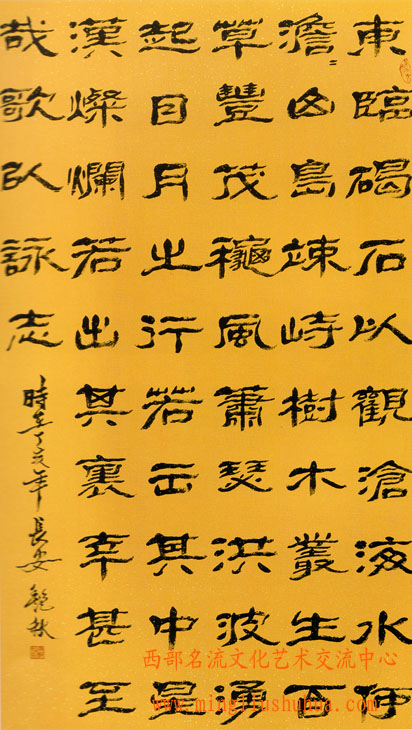 東臨碣石以觀滄海水何
澹〻山島竦峙樹木叢生百
草豐茂龝風蕭瑟洪波湧
起日月之行若云其中星
漢燦爛若出其裏幸甚至
哉歌以詠志
時在丁亥年長安
西部名流文化艺术交流中心
www.mingliushuhua.com